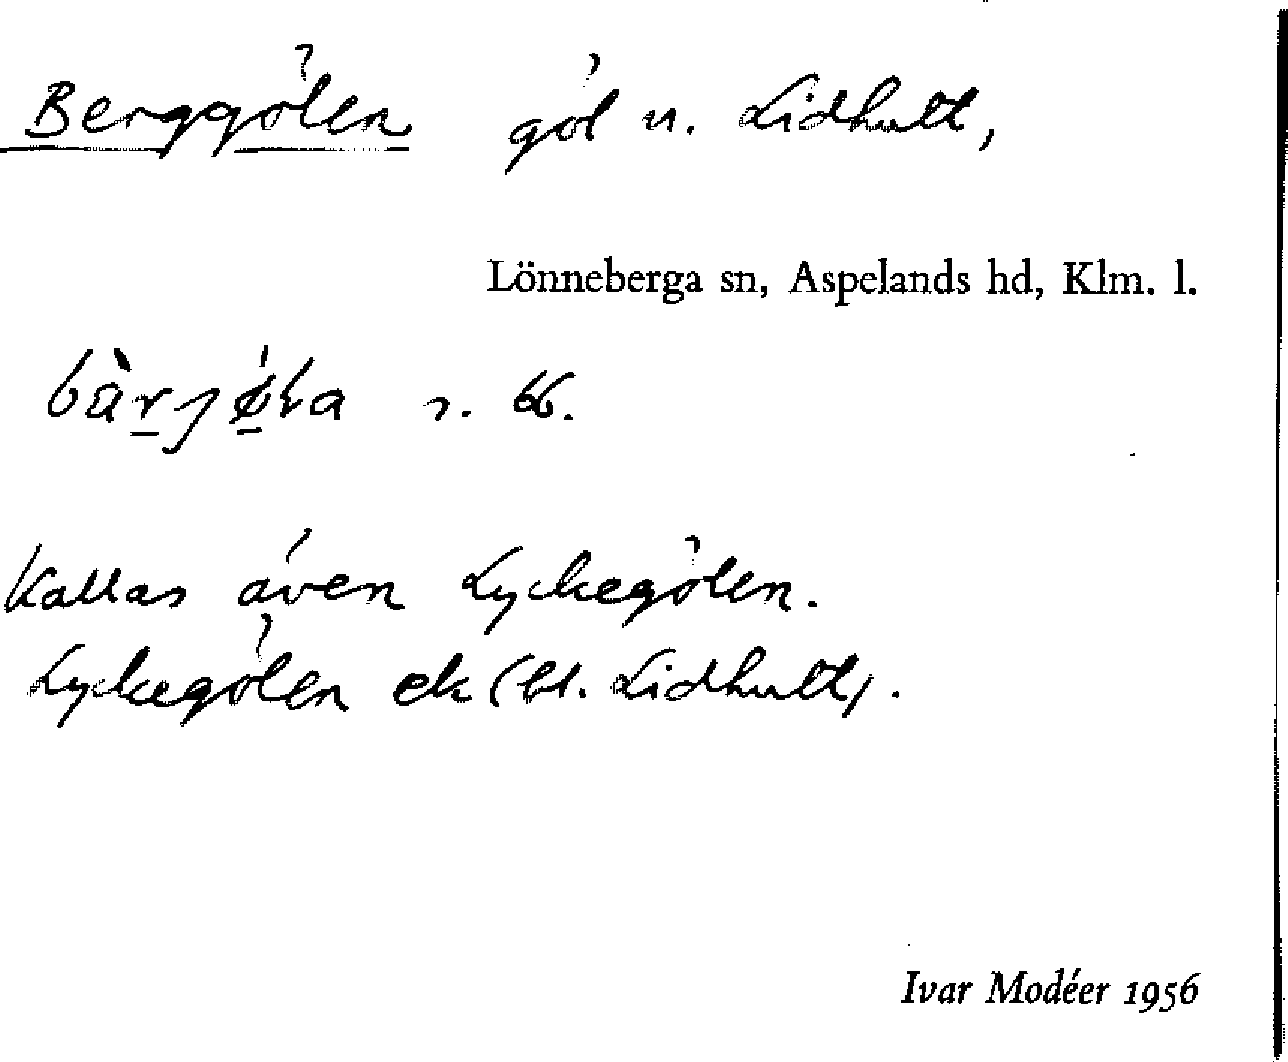 Berggölen göl u. Lidhult,
Lönneberga sn, Aspelands hd, Klm. l.
Kallas även Lyckegölen.
Lyckegölen ek (bl. Lidhult).
Ivar Modéer 1956